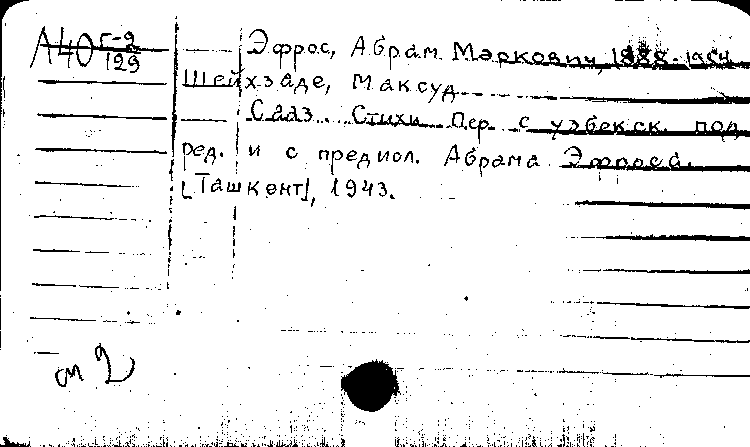 А40 Г-9/129
Эфрос, Абрам Маркович, 1888-1954
Шейхзаде, Максуд
Сааз. Стихи. Пер. с узбекск. под
ред. и с предисл. Абрама Эфроса.
[Ташкент], 1943.
м 2